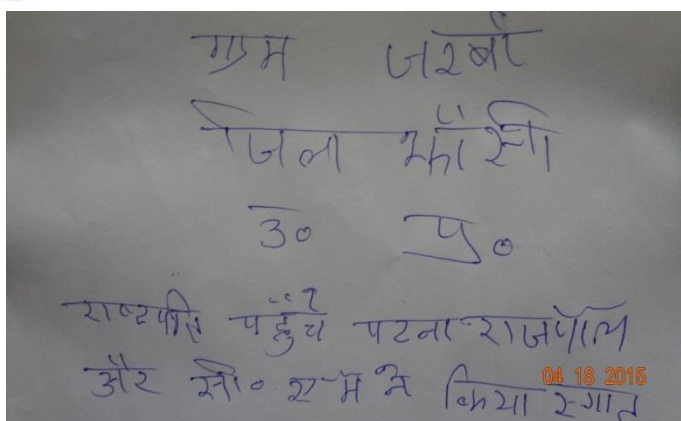 ग्राम जरबौ
जिला झाँसी
उ० प्र०
राष्टपति पहुँचे पटना राजपाल
और सी० एम ने किया स्गात
04 18 2015